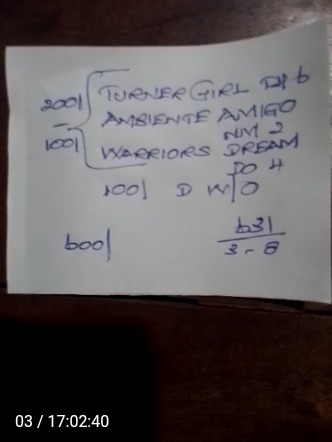 200/ TURNER GIRL DN 6
AMBIENTE AMIGO
100/ NM 2
WARRIORS DREAM
DO 4
100/ D W/O
600/ 631
3-8
03 / 17:02:40